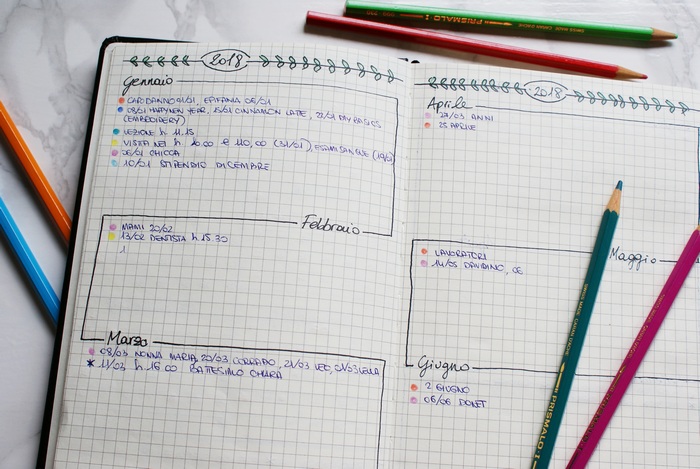 2018
Gennaio
CAPODANNO 01/01, EPIFANIA 06/01
08/01 HAPPY NEW YEAR, 15/01 CINNAMON LATE, 22/01 DIY BASICS
(EMBROIDERY)
LEZIONE h 11.15
VISITA NEI h 20.00 € 110,00 (31/01), ESAMI SANGUE (19/01)
06/01 CHICCA
10/01 STIPENDIO DICEMBRE
Febbraio
MAMI 20/02
13/02 DENTISTA h 15.30
Marzo
08/03 NONNA MARIA, 20/03 CORRADO, 21/03 LEO,
11/03 h 16.00 BATTESIMO CHIARA
2018
Aprile
ANNI
25 APRILE
Maggio
LAVORATORI
14/05
Giugno
2 GIUGNO
06/06
PRISMALO I
PRISMALO I
PRISMALO I